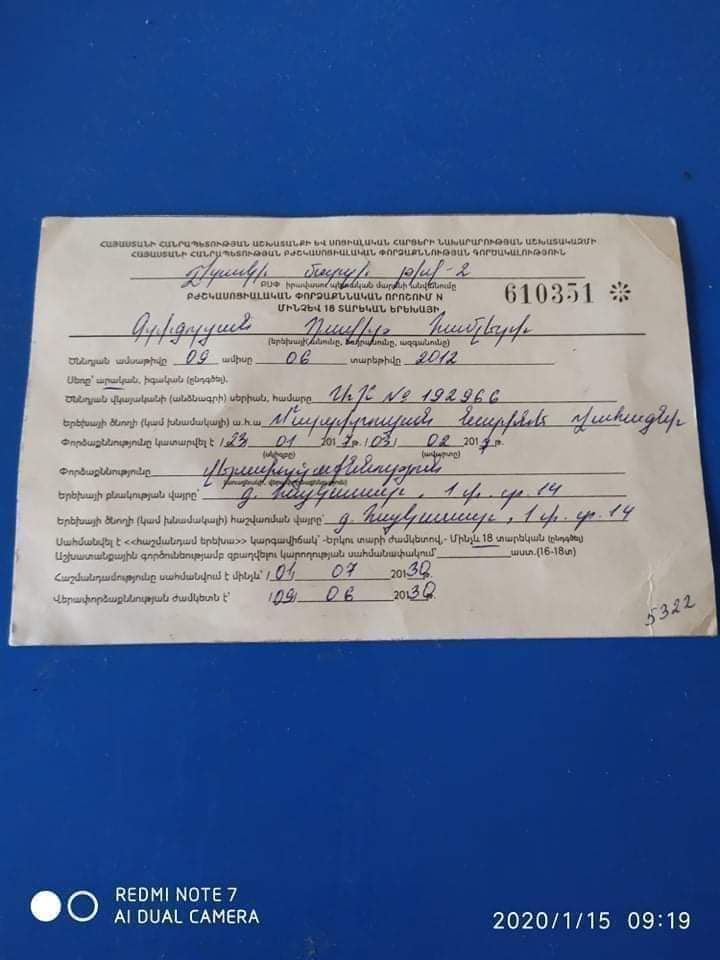 ՀԱՅԱՍՏԱՆԻ ՀԱՆՐԱՊԵՏՈՒԹՅԱՆ ԱՇԽԱՏԱՆՔԻ ԵՎ ՍՈՑԻԱԼԱԿԱՆ ՀԱՐՑԵՐԻ ՆԱԽԱՐԱՐՈՒԹՅԱՆ ԱՇԽԱՏԱԿԱԶՄԻ
ՀԱՅԱՍՏԱՆԻ ՀԱՆՐԱՊԵՏՈՒԹՅԱՆ ԲԺՇԿԱՍՈՑԻԱԼԱԿԱՆ ՓՈՐՁԱՔՆՆՈՒԹՅԱՆ ԳՈՐԾԱԿԱԼՈՒԹՅՈՒՆ
Շիրակի մարզի -2
ԲՍՓ իրավասու պետական մարմնի անվանումը
ԲԺՇԿԱՍՈՑԻԱԼԱԿԱՆ ՓՈՐՁԱՔՆՆԱԿԱՆ ՈՐՈՇՈՒՄ N 610351
ՄԻՆՉԵՎ 18 ՏԱՐԵԿԱՆ ԵՐԵԽԱՅԻ
Գրիգորյան Դավիթ Համլետի
(երեխայի անունը, հայրանունը, ազգանունը)
Ծննդյան ամսաթիվը 09 ամիսը 06 տարեթիվը 2012
Սեռը՝ արական, իգական (ընդգծել),
Ծննդյան վկայականի (անձնագրի) սերիան, համարը № 192966
Երեխայի ծնողի (կամ խնամակալի) ա.հ.ա Նարինե
Փորձաքննությունը կատարվել է /23 01 2017թ./03/ 02 2017թ.
(սկիզբը) (ավարտը)
Փորձաքննությունը վերափորձաքննություն
Երեխայի բնակության վայրը՝ գ. Հայկասար, 1 փ. տ. 14
Երեխայի ծնողի (կամ խնամակալի) հաշվառման վայրը՝ գ. Հայկասար, 1 փ. տ. 14
Սահմանվել է <<հաշմանդամ երեխա>> կարգավիճակ՝ -Երկու տարի ժամկետով,- Մինչև 18 տարեկան (ընդգծել)
Աշխատանքային գործունեությամբ զբաղվելու կարողության սահմանափակում՝ աստ.(16-18տ)
Հաշմանդամությունը սահմանվում է մինչև՝ /01 07 2030թ.
Վերափորձաքննության ժամկետն է՝ /09/ 06 2030թ.
5322
REDMI NOTE 7
AI DUAL CAMERA
2020/1/15 09:19